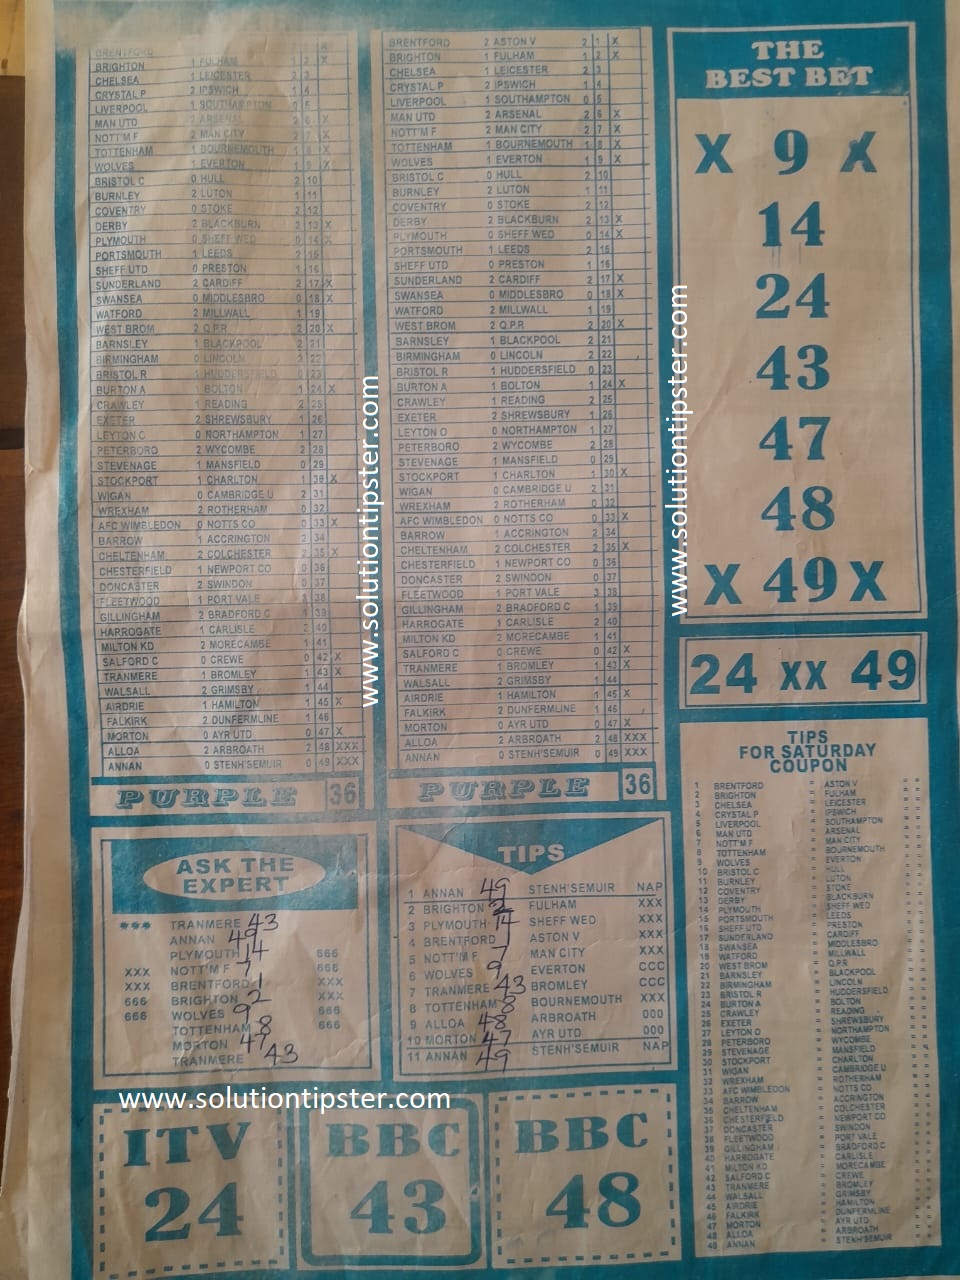 BRENTFORD X
BRIGHTON 1 FULHAM 1 2 X
CHELSEA 1 LEICESTER 2 3
CRYSTAL P 2 IPSWICH 1 4
LIVERPOOL 1 SOUTHAMPTON 0 5
MAN UTD 2 ARSENAL 2 6 X
NOTT'M F 2 MAN CITY 2 7 X
TOTTENHAM 1 BOURNEMOUTH 1 8 X
WOLVES 1 EVERTON 1 9 X
BRISTOL C 0 HULL 2 10
BURNLEY 2 LUTON 1 11
COVENTRY 0 STOKE 2 12
DERBY 2 BLACKBURN 2 13 X
PLYMOUTH 0 SHEFF WED 0 14 X
PORTSMOUTH 1 LEEDS 2 15
SHEFF UTD 0 PRESTON 1 16
SUNDERLAND 2 CARDIFF 2 17 X
SWANSEA 0 MIDDLESBRO 0 18 X
WATFORD 2 MILLWALL 1 19
WEST BROM 2 Q.P.R 2 20 X
BARNSLEY 1 BLACKPOOL 2 21
BIRMINGHAM 0 LINCOLN 2 22
BRISTOL R 1 HUDDERSFIELD 0 23
BURTON A 1 BOLTON 1 24 X
CRAWLEY 1 READING 2 25
EXETER 2 SHREWSBURY 1 26
LEYTON O 0 NORTHAMPTON 1 27
PETERBORO 2 WYCOMBE 2 28
STEVENAGE 1 MANSFIELD 0 29
STOCKPORT 1 CHARLTON 1 30 X
WIGAN 0 CAMBRIDGE U 2 31
WREXHAM 2 ROTHERHAM 0 32
AFC WIMBLEDON 0 NOTTS CO 0 33 X
BARROW 1 ACCRINGTON 2 34
CHELTENHAM 2 COLCHESTER 2 35 X
CHESTERFIELD 1 NEWPORT CO 0 36
DONCASTER 2 SWINDON 0 37
FLEETWOOD 1 PORT VALE 3 38
GILLINGHAM 2 BRADFORD C 1 39
HARROGATE 1 CARLISLE 2 40
MILTON KD 2 MORECAMBE 1 41
SALFORD C 0 CREWE 0 42 X
TRANMERE 1 BROMLEY 1 43 X
WALSALL 2 GRIMSBY 1 44
AIRDRIE 1 HAMILTON 1 45 X
FALKIRK 2 DUNFERMLINE 1 46
MORTON 0 AYR UTD 0 47 X
ALLOA 2 ARBROATH 2 48 XXX
ANNAN 0 STENH'SEMUIR 0 49 XXX
PURPLE 36
BRENTFORD 2 ASTON V 2 1 X
BRIGHTON 1 FULHAM 1 2 X
CHELSEA 1 LEICESTER 2 3
CRYSTAL P 2 IPSWICH 1 4
LIVERPOOL 1 SOUTHAMPTON 0 5
MAN UTD 2 ARSENAL 2 6 X
NOTT'M F 2 MAN CITY 2 7 X
TOTTENHAM 1 BOURNEMOUTH 1 8 X
WOLVES 1 EVERTON 1 9 X
BRISTOL C 0 HULL 2 10
BURNLEY 2 LUTON 1 11
COVENTRY 0 STOKE 2 12
DERBY 2 BLACKBURN 2 13 X
PLYMOUTH 0 SHEFF WED 0 14 X
PORTSMOUTH 1 LEEDS 2 15
SHEFF UTD 0 PRESTON 1 16
SUNDERLAND 2 CARDIFF 2 17 X
SWANSEA 0 MIDDLESBRO 0 18 X
WATFORD 2 MILLWALL 1 19
WEST BROM 2 Q.P.R 2 20 X
BARNSLEY 1 BLACKPOOL 2 21
BIRMINGHAM 0 LINCOLN 2 22
BRISTOL R 1 HUDDERSFIELD 0 23
BURTON A 1 BOLTON 1 24 X
CRAWLEY 1 READING 2 25
EXETER 2 SHREWSBURY 1 26
LEYTON O 0 NORTHAMPTON 1 27
PETERBORO 2 WYCOMBE 2 28
STEVENAGE 1 MANSFIELD 0 29
STOCKPORT 1 CHARLTON 1 30 X
WIGAN 0 CAMBRIDGE U 2 31
WREXHAM 2 ROTHERHAM 0 32
AFC WIMBLEDON 0 NOTTS CO 0 33 X
BARROW 1 ACCRINGTON 2 34
CHELTENHAM 2 COLCHESTER 2 35 X
CHESTERFIELD 1 NEWPORT CO 0 36
DONCASTER 2 SWINDON 0 37
FLEETWOOD 1 PORT VALE 3 38
GILLINGHAM 2 BRADFORD C 1 39
HARROGATE 1 CARLISLE 2 40
MILTON KD 2 MORECAMBE 1 41
SALFORD C 0 CREWE 0 42 X
TRANMERE 1 BROMLEY 1 43 X
WALSALL 2 GRIMSBY 1 44
AIRDRIE 1 HAMILTON 1 45 X
FALKIRK 2 DUNFERMLINE 1 46
MORTON 0 AYR UTD 0 47 X
ALLOA 2 ARBROATH 2 48 XXX
ANNAN 0 STENH'SEMUIR 0 49 XXX
PURPLE 36
THE
BEST BET
X 9 X
14
24
43
47
48
X 49 X
24 XX 49
www.solutiontipster.com
www.solutiontipster.com
ASK THE
EXPERT
*** TRANMERE 43
ANNAN 49
PLYMOUTH 14 666
XXX NOTT'M F 7 666
XXX BRENTFORD 1 XXX
666 BRIGHTON 2 XXX
666 WOLVES 9 666
TOTTENHAM 8 666
MORTON 47
TRANMERE 43
TIPS
1 ANNAN 49 STENH'SEMUIR NAP
2 BRIGHTON 2 FULHAM XXX
3 PLYMOUTH 14 SHEFF WED XXX
4 BRENTFORD 1 ASTON V XXX
5 NOTT'M F 7 MAN CITY XXX
6 WOLVES 9 EVERTON CCC
7 TRANMERE 43 BROMLEY CCC
8 TOTTENHAM 8 BOURNEMOUTH XXX
9 ALLOA 48 ARBROATH 000
10 MORTON 47 AYR UTD 000
11 ANNAN 49 STENH'SEMUIR NAP
www.solutiontipster.com
ITV
24
BBC
43
BBC
48
TIPS
FOR SATURDAY
COUPON
1 BRENTFORD = ASTON V " "
2 BRIGHTON = FULHAM " "
3 CHELSEA = LEICESTER " "
4 CRYSTAL P = IPSWICH " "
5 LIVERPOOL = SOUTHAMPTON " "
6 MAN UTD = ARSENAL " "
7 NOTT'M F = MAN CITY " "
8 TOTTENHAM = BOURNEMOUTH " "
9 WOLVES = EVERTON " "
10 BRISTOL C = HULL " "
11 BURNLEY = LUTON " "
12 COVENTRY = STOKE " "
13 DERBY = BLACKBURN " "
14 PLYMOUTH = SHEFF WED " "
15 PORTSMOUTH = LEEDS " "
16 SHEFF UTD = PRESTON " "
17 SUNDERLAND = CARDIFF " "
18 SWANSEA = MIDDLESBRO " "
19 WATFORD = MILLWALL " "
20 WEST BROM = Q.P.R " "
21 BARNSLEY = BLACKPOOL " "
22 BIRMINGHAM = LINCOLN " "
23 BRISTOL R = HUDDERSFIELD " "
24 BURTON A = BOLTON " "
25 CRAWLEY = READING " "
26 EXETER = SHREWSBURY " "
27 LEYTON O = NORTHAMPTON " "
28 PETERBORO = WYCOMBE " "
29 STEVENAGE = MANSFIELD " "
30 STOCKPORT = CHARLTON " "
31 WIGAN = CAMBRIDGE U " "
32 WREXHAM = ROTHERHAM " "
33 AFC WIMBLEDON = NOTTS CO " "
34 BARROW = ACCRINGTON " "
35 CHELTENHAM = COLCHESTER " "
36 CHESTERFIELD = NEWPORT CO " "
37 DONCASTER = SWINDON " "
38 FLEETWOOD = PORT VALE " "
39 GILLINGHAM = BRADFORD C " "
40 HARROGATE = CARLISLE " "
41 MILTON KD = MORECAMBE " "
42 SALFORD C = CREWE " "
43 TRANMERE = BROMLEY " "
44 WALSALL = GRIMSBY " "
45 AIRDRIE = HAMILTON " "
46 FALKIRK = DUNFERMLINE " "
47 MORTON = AYR UTD " "
48 ALLOA = ARBROATH " "
49 ANNAN = STENH'SEMUIR " "